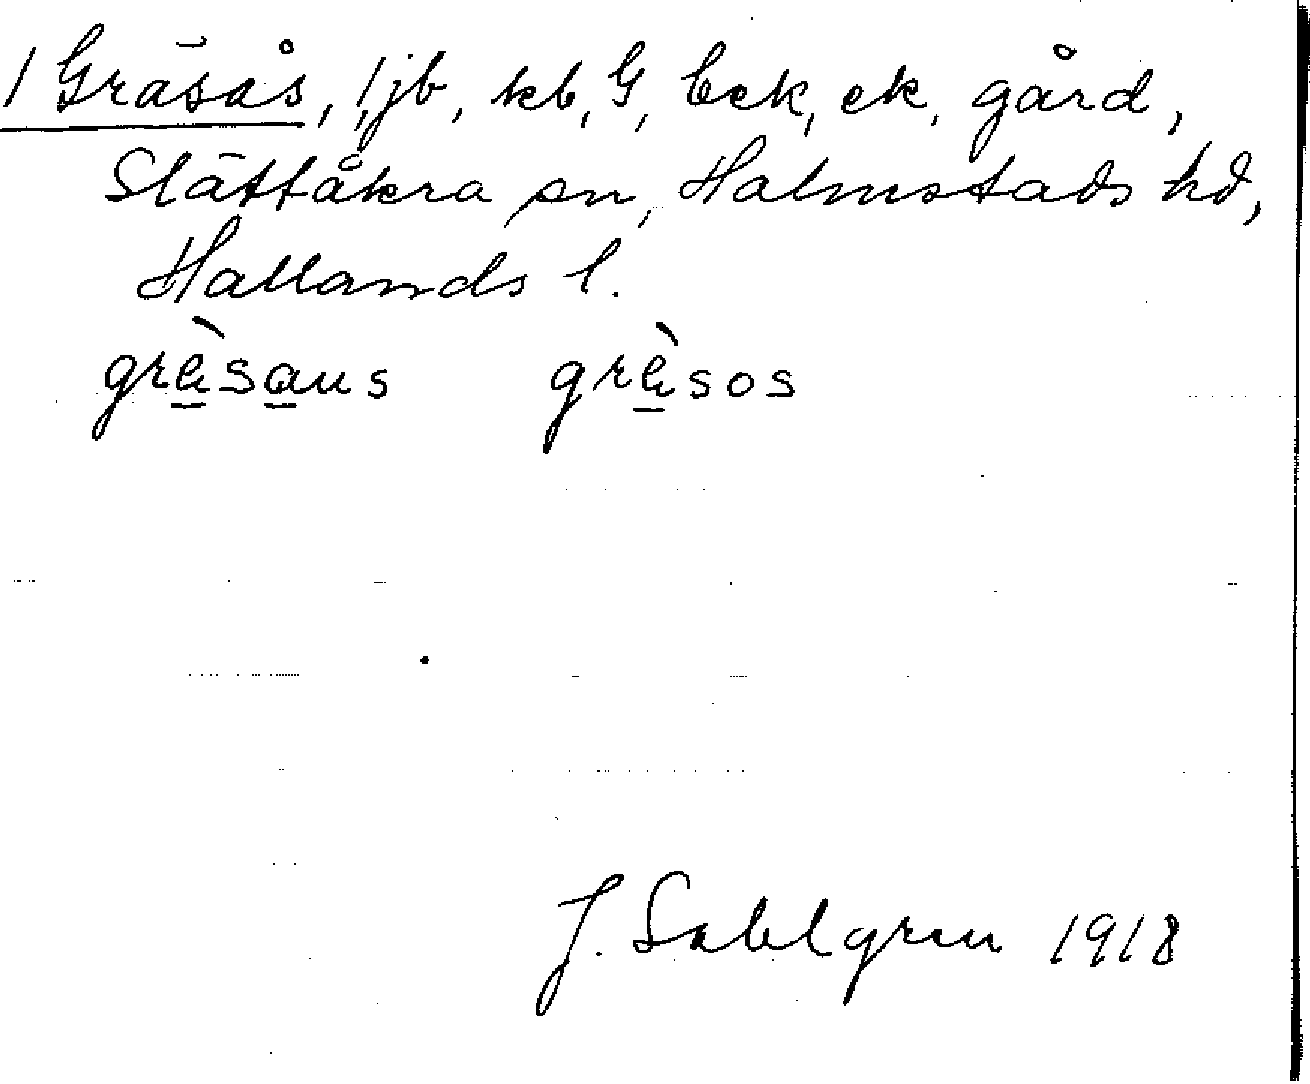 1 Gräsås, 1, jb, kb, G, Eek, ek, gård,
Slättåkra sn, Halmstads hd,
Hallands l.
grèsaus grèsos
J. Sahlgren 1918